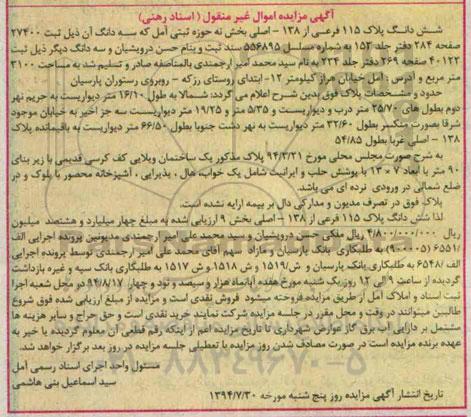 آگهی مزایده اموال غیر منقول ( اسناد رهنی)
شش دانگ پلاک ۱۱۵ فرعی از ۱۳۸ – اصلی بخش نه حوزه ثبتی آمل که سه دانگ آن ذیل ثبت ۲۷۴۰۰
صفحه ۲۸۴ دفتر جلد ۱۵۲ به شماره مسلسل ۵۵۶۸۹۵ سند ثبت و بنام حسن درویشیان و سه دانگ دیگر ذیل ثبت
۴۰۱۲۲ صفحه ۲۶۹ دفتر جلد ۲۲۴ به نام سید محمد امیر ارجمندی بالمناصفه صادر و تسلیم شد به مساحت ۳۱۰۰
متر مربع و آدرس : آمل خیابان هراز کیلومتر ۱۲- ابتدای روستای رزکه – روبروی رستوران پارسیان
حدود و مشخصات پلاک فوق بدین شرح اعلام می گردد: شمالا به طول ۱۶/۱۰ متر دیواریست به حریم نهر
دوم بطول های ۲۵/۷۰ متر درب و دیواریست و ۵/۳۵ متر و ۱۹/۲۵ متر دیواریست سه جز اخیر به خیابان موجود
شرقا بصورت منکسر بطول ۳۲/۶۰ متر دیواریست به نهر دشت جنوبا بطول ۶۶/۵۰ متر دیواریست به باقیمانده پلاک
۱۳۸ – اصلی غربا بطول ۵۴/۸۵
به شرح صورت مجلس محلی مورخ ۹۴/۳/۲۱ پلاک مذکور یک ساختمان ویلایی کف کرسی قدیمی با زیر بنای
۹۰ متر با ابعاد ۷ × ۱۳ با پوشش حلب و ایرانیت شامل یک خواب، هال ، پذیرایی ، آشپزخانه محصور با بلوک و در
ضلع شمالی در ورودی نرده ای می باشد.
پلاک فوق در تصرف مدیون و مدارکی دال بر بیمه ارایه نشده است.
لذا شش دانگ پلاک ۱۱۵ فرعی از ۱۳۸ – اصلی بخش ۹ ارزیابی شده به مبلغ چهار میلیارد و هشتصد میلیون
ریال ۴/۸۰۰/۰۰۰/۰۰۰ ریال ملکی حسن درویشیان و سید محمد علی امیر ارجمندی مدیونین پرونده اجرایی الف
/۶۵۵۱ (۹۰۰۰۰۵) به طلبکاری بانک پارسیان و مازاد سهم آقای محمد علی امیر ارجمندی توسط پرونده اجرایی
الف /۶۵۴۸ به طلبکاری بانک پارسیان و ش/۱۵۱۹ و ش ۱۵۱۸ و ش ۱۵۱۷ به طلبکاری بانک سپه و غیره بازداشت
گردیده از ساعت ۹ الی ۱۲ روز یک شنبه مورخ هفده آبانماه هزار و سیصد و نود و چهار ۹۴/۸/۱۷ در محل شعبه اجرا
ثبت اسناد و املاک آمل از طریق مزایده فروخته میشود فروش نقدی است و مزایده از مبلغ ارزیابی شده فوق شروع
طالبین میتوانند در وقت و محل مقرر در جلسه مزایده شرکت نمایند خرید نقدی است و حق حراج و سایر هزینه ها
مشتمل بر دارایی آب برق گاز عوارض شهرداری تا تاریخ مزایده اعم از اینکه رقم قطعی آن معلوم گردیده یا خیر به
عهده برنده مزایده است در صورت مصادف شدن روز مزایده با تعطیلی جلسه مزایده در روز بعد برگزار خواهد شد.
مسئول واحد اجرای اسناد رسمی آمل
سید اسماعیل بنی هاشمی
تاریخ انتشار آگهی مزایده روز پنج شنبه مورخه ۱۳۹۴/۷/۳۰